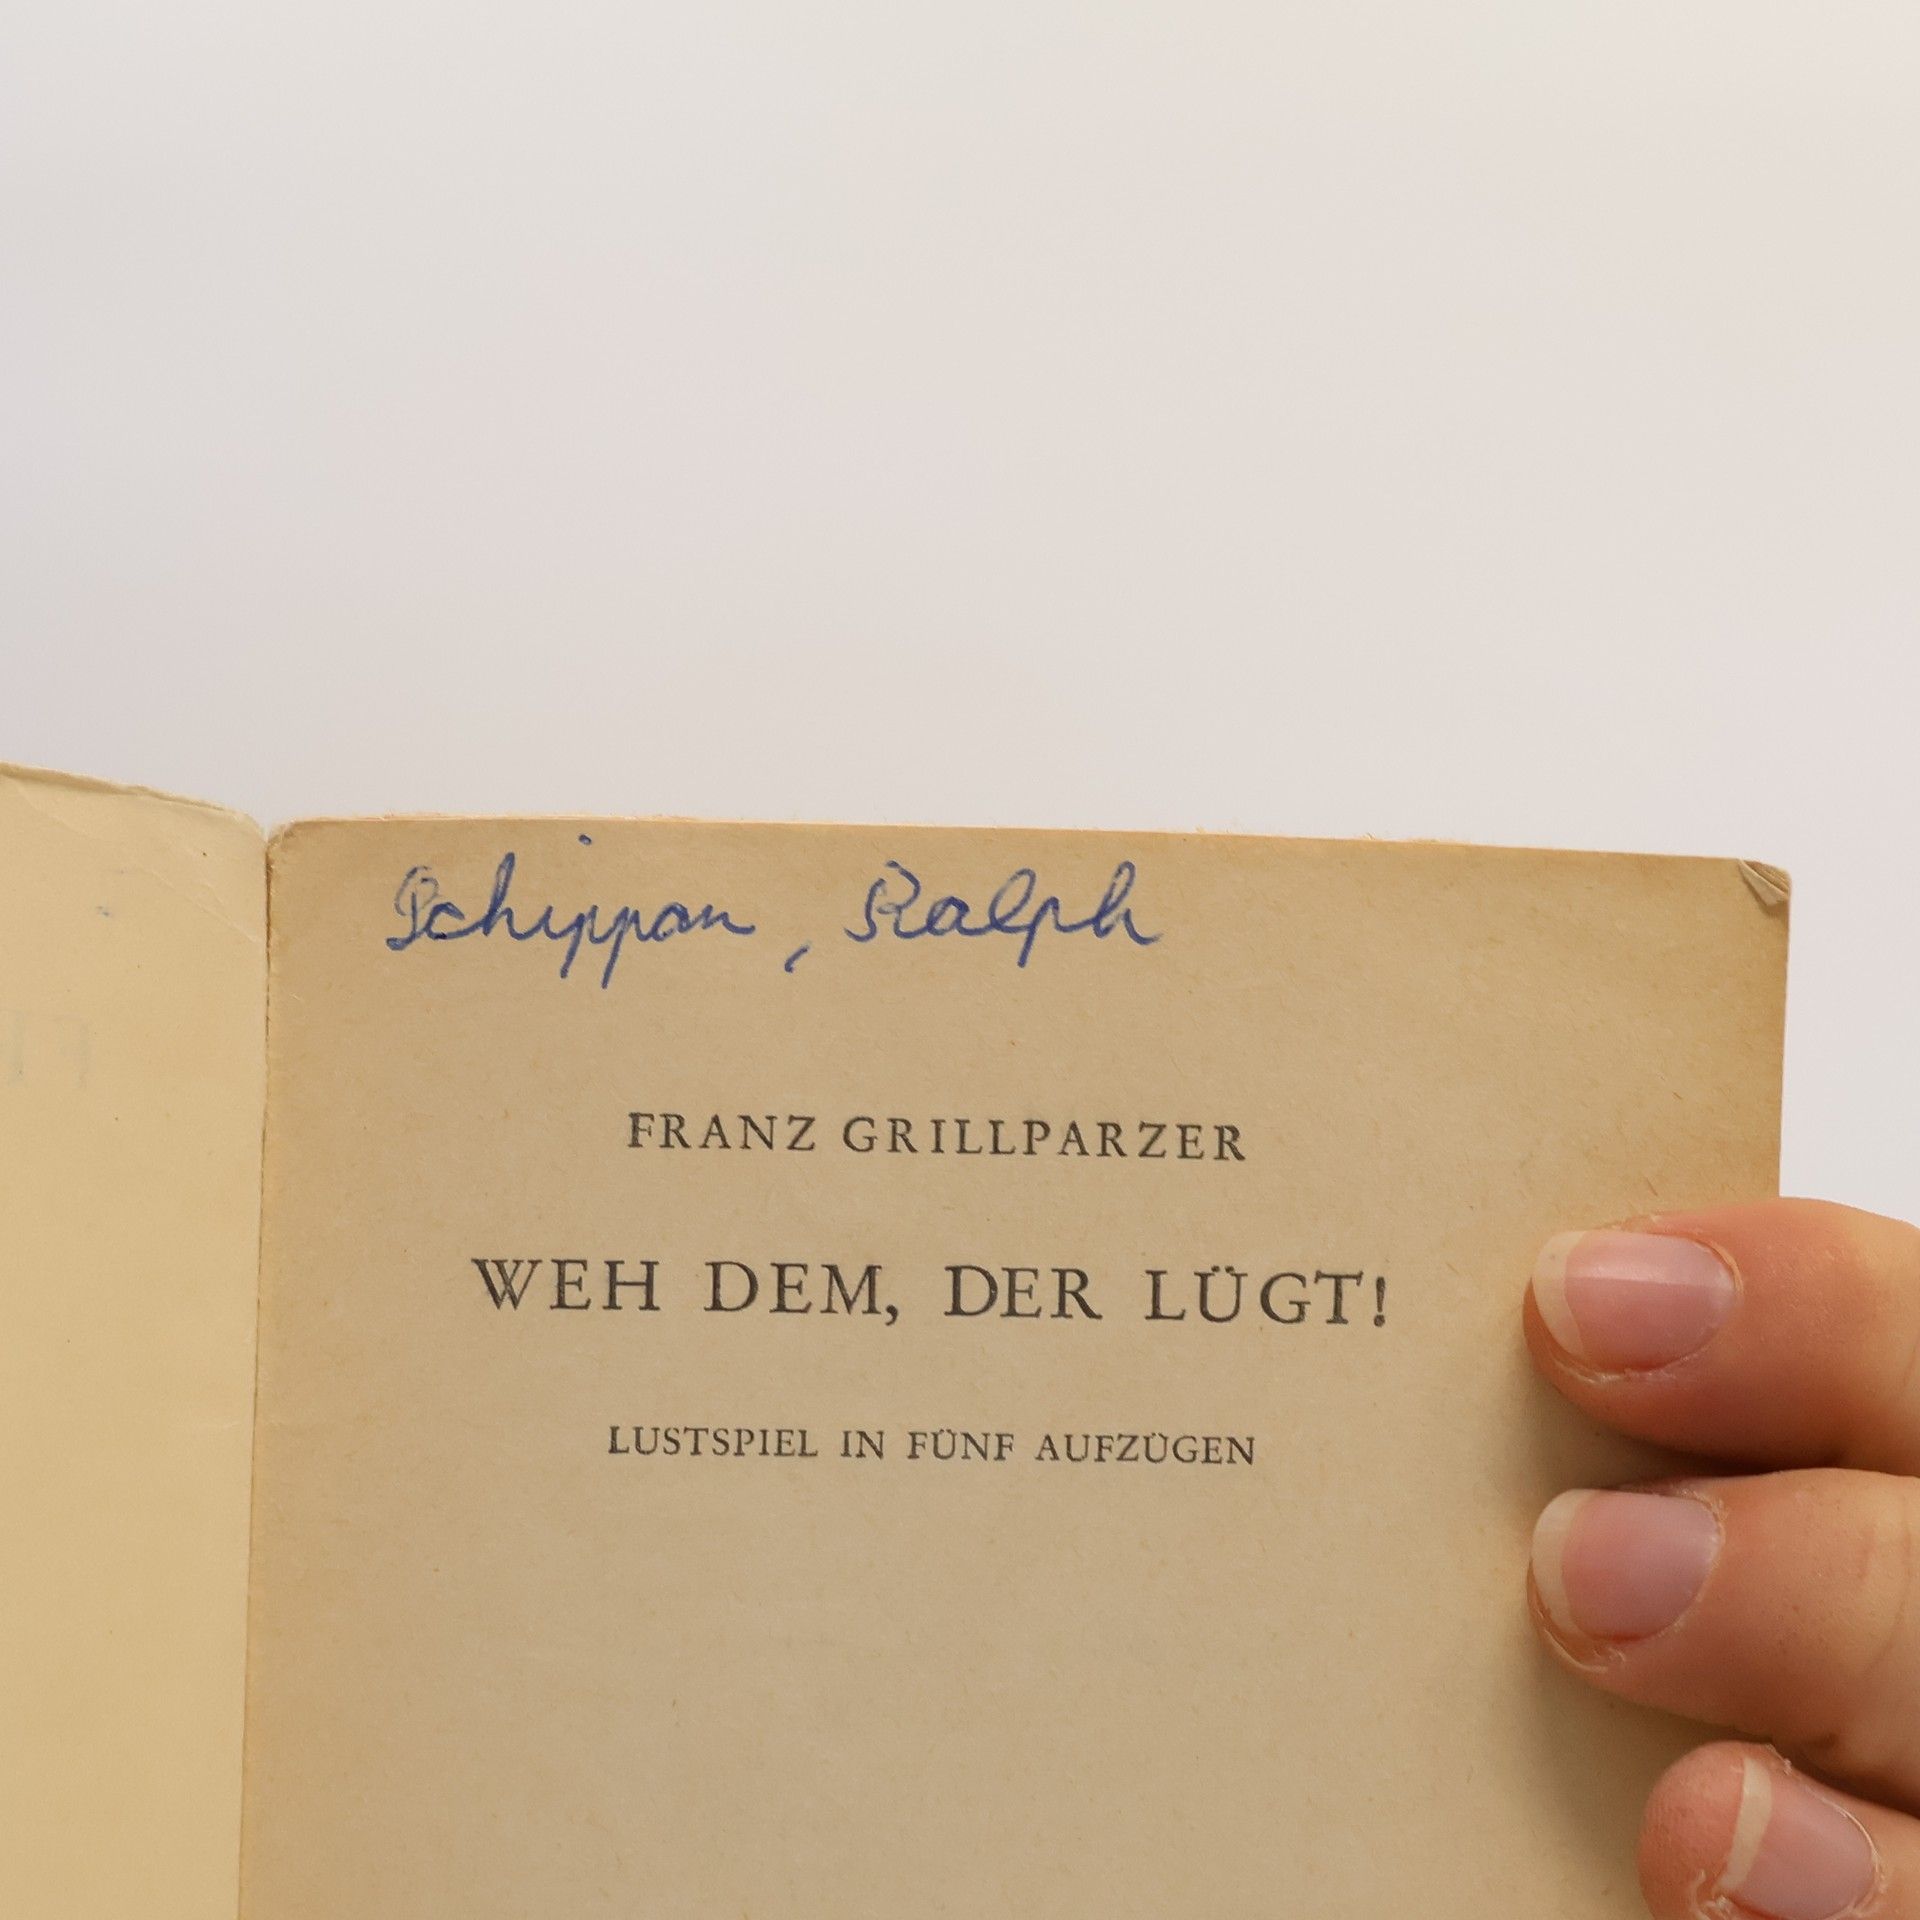 Schippan, Ralph
FRANZ GRILLPARZER
WEH DEM, DER LÜGT!
LUSTSPIEL IN FÜNF AUFZÜGEN